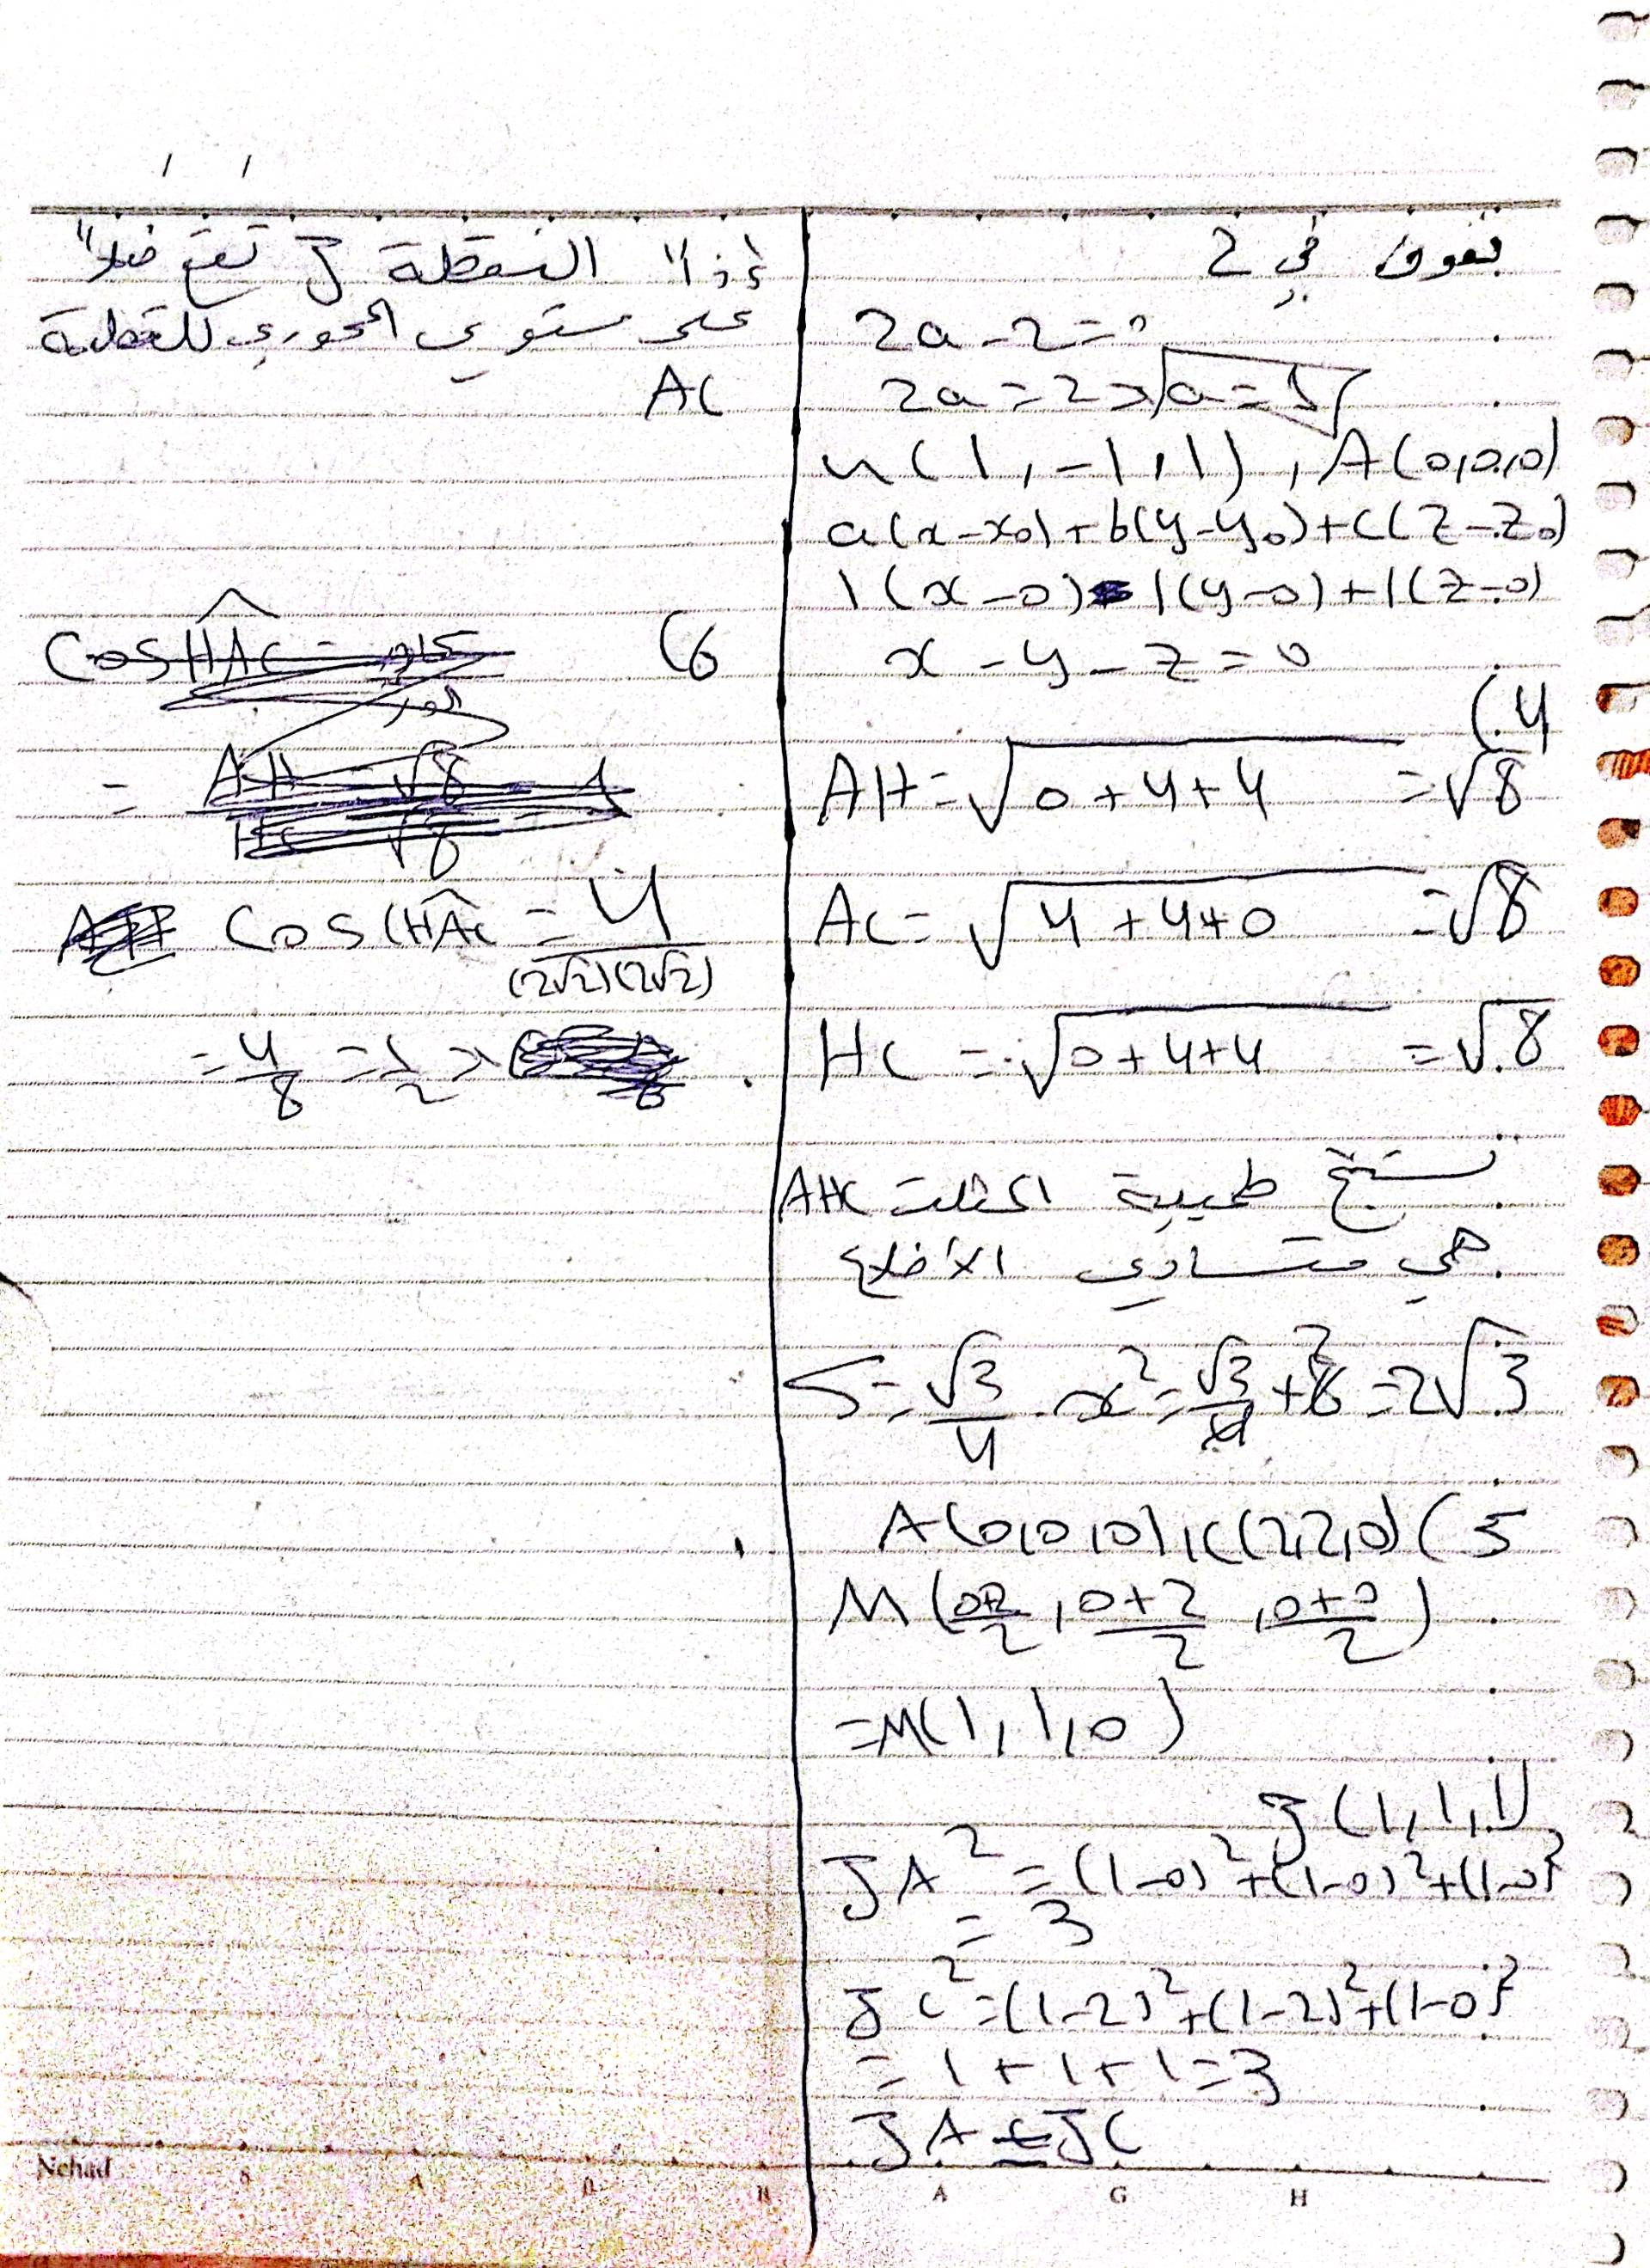 نعوض في 2
2a - 2 = 0
2a = 2 => a = 1
n(1, -1, 1), A(0,0,0)
a(x-x0)+b(y-y0)+c(z-z0)
1(x-0)-1(y-0)+1(z-0)
x - y - z = 0
(4
AH = √0+4+4 = √8
AC = √4+4+0 = √8
HC = √0+4+4 = √8
نستنتج طبيعة المثلث AHC
هي متساوي الأضلاع
S = √3/4 . x² = √3/4 + 8 = 2√3
A(0,0,0), C(2,2,0) (5
M(0+2/2, 0+2/2, 0+0/2)
= M(1,1,0)
J(1,1,1)
JA² = (1-0)²+(1-0)²+(1-0)²
= 3
JC² = (1-2)²+(1-2)²+(1-0)²
= 1+1+1=3
JA = JC
إذاً النقطة J تقع فعلاً
على مستوي المحوري للقطعة
AC
(6
Cos HAC =
= AH/HC = √8/√8 = 1
Cos(HAC = 4/(2√2)(2√2)
= 4/8 = 1/2 =>
Nehad
A G H